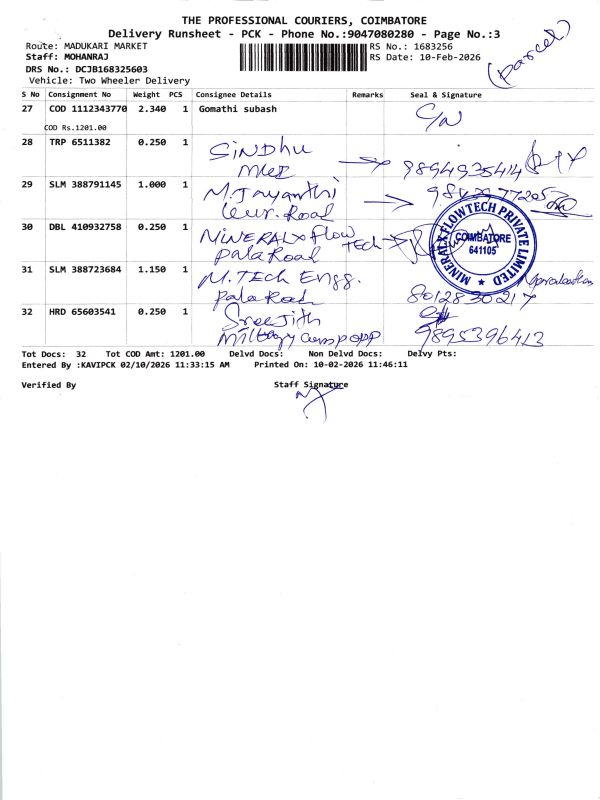 THE PROFESSIONAL COURIERS, COIMBATORE
Delivery Runsheet - PCK - Phone No.:9047080280 - Page No.:3
Route: MADUKARI MARKET
RS No.: 1683256
Staff: MOHANRAJ
RS Date: 10-Feb-2026
(parcel)
DRS No.: DCJB168325603
Vehicle: Two Wheeler Delivery
S No Consignment No Weight PCS Consignee Details Remarks Seal & Signature
27 COD 1112343770 2.340 1 Gomathi subash
COD Rs.1201.00
28 TRP 6511382 0.250 1 SiNDhu
9894935414
29 SLM 388791145 1.000 1 M. Jayanthi
Road
30 DBL 410932758 0.250 1 MiNERALX Flow Tech
pala Road
MINERALX FLOWTECH PRIVATE LIMITED
COIMBATORE
641105
31 SLM 388723684 1.150 1 M. TECH Engg.
pala Road
8012830217
32 HRD 65603541 0.250 1 Sreejith
Military camp opp
9895396413
Tot Docs: 32 Tot COD Amt: 1201.00 Delvd Docs: Non Delvd Docs: Delvy Pts:
Entered By :KAVIPCK 02/10/2026 11:33:15 AM Printed On: 10-02-2026 11:46:11
Verified By Staff Signature